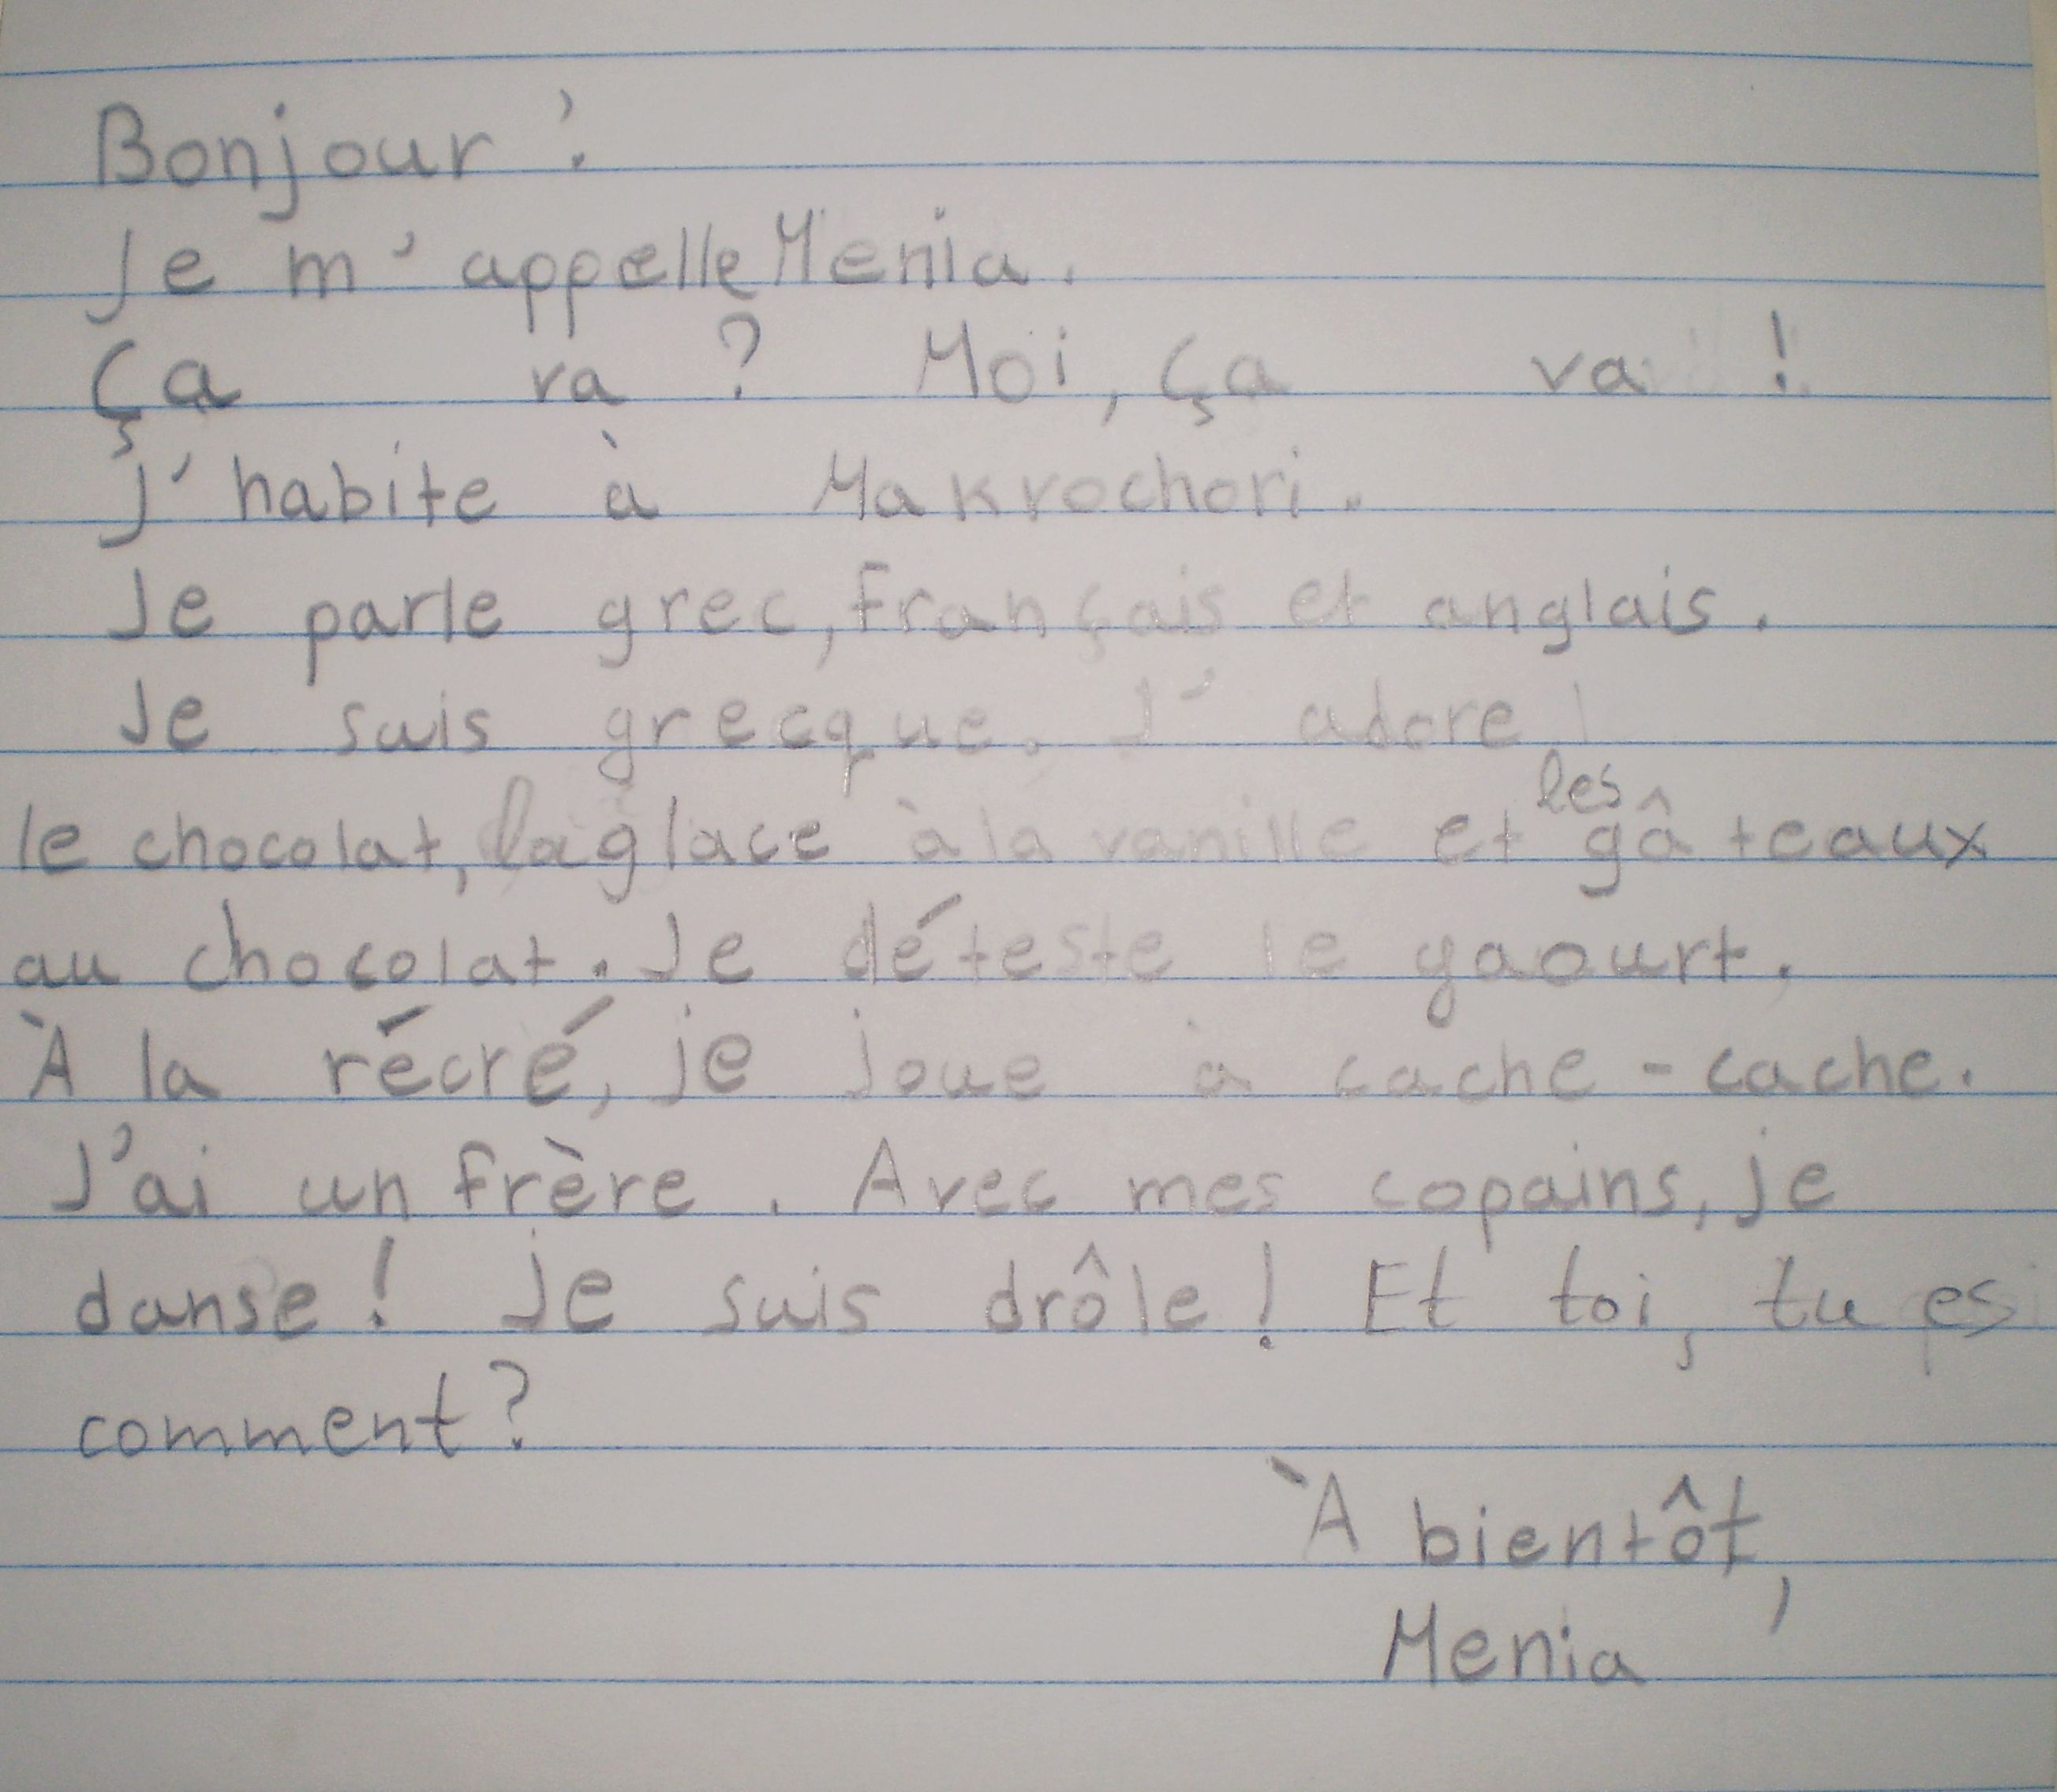 Bonjour !
Je m'appelle Menia.
Ça va ? Moi, ça va !
J'habite à Makrochori.
Je parle grec, français et anglais.
Je suis grecque. J'adore
les
le chocolat, la glace à la vanille et gâteaux
au chocolat. Je déteste le yaourt.
À la récré, je joue à cache-cache.
J'ai un frère. Avec mes copains, je
danse! Je suis drôle! Et toi, tu es
comment?
À bientôt,
Menia